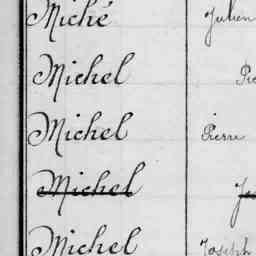 Miché Julien
Michel
Michel Pierre
Michel
Michel Joseph